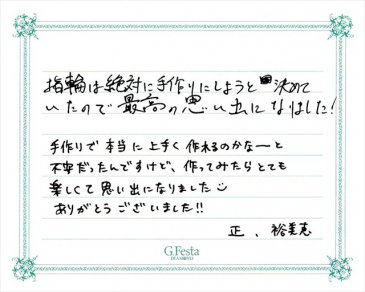 指輪は絶対に手作りにしようと決めて
いたので最高の思い出になりました!
手作りで本当に上手く作れるのかなーと
不安だったんですけど、作ってみたらとても
楽しくて思い出になりました
ありがとうございました!!
正、裕美恵
G.Festa